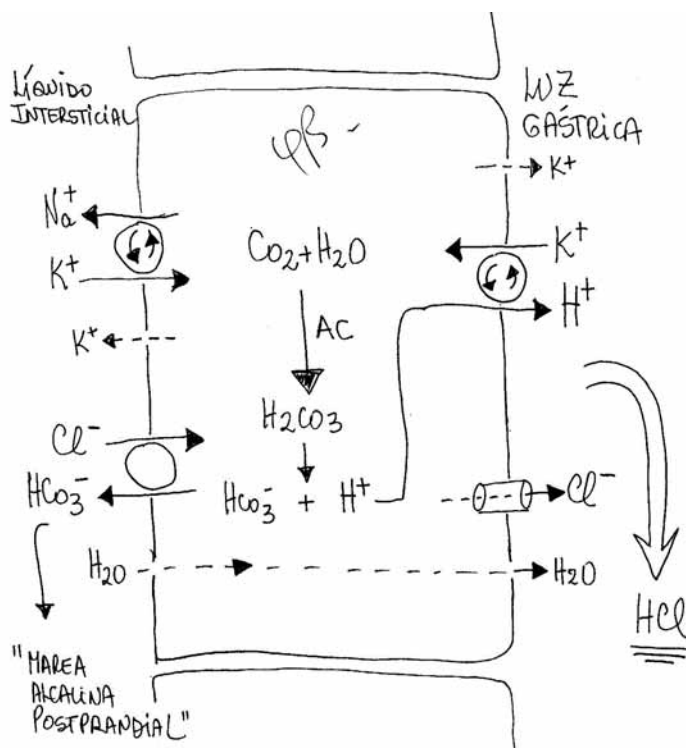 LÍQUIDO
INTERSTICIAL
LUZ
GÁSTRICA
K⁺
Na⁺
K⁺
CO₂+H₂O
K⁺
H⁺
K⁺
AC
H₂CO₃
Cl⁻
HCO₃⁻
HCO₃⁻ + H⁺
Cl⁻
H₂O
H₂O
HCl
"MAREA
ALCALINA
POSTPRANDIAL"